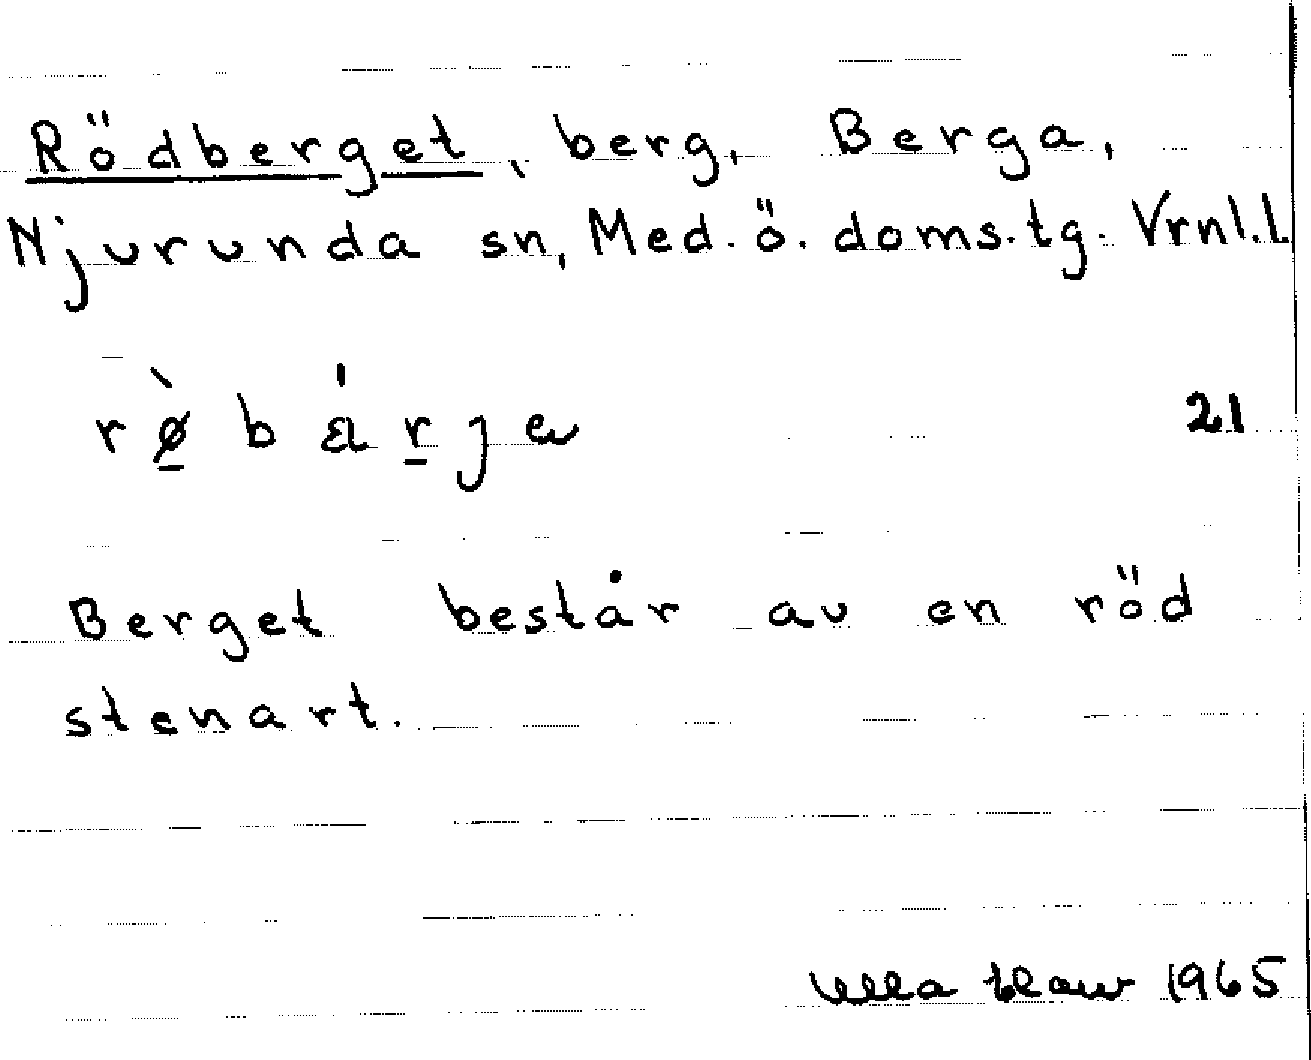 Rödberget, berg, Berga,
Njurunda sn, Med. ö. doms. tg. Vrnl. l.
21
Berget består av en röd
stenart.
Ulla 1965